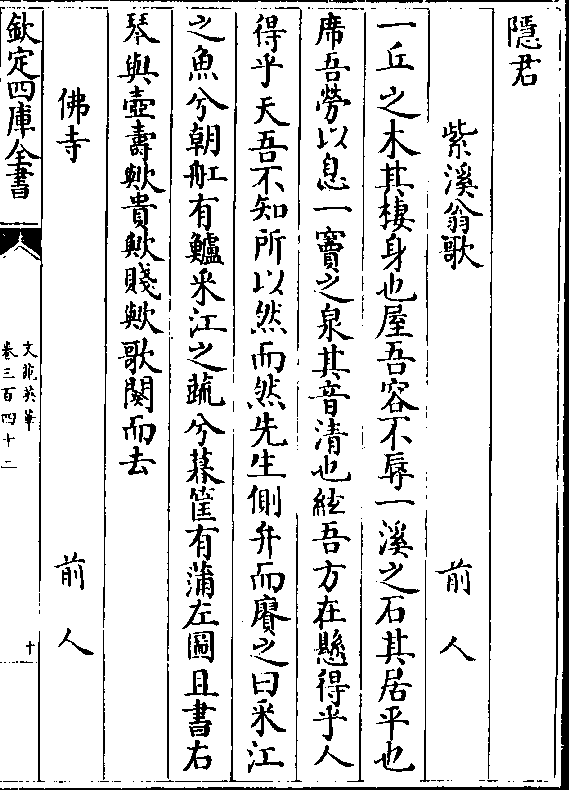 隱君
紫溪翁歌 前人
一丘之木其棲身也屋吾容不辱一溪之石其居平也
席吾勞以息一竇之泉其音清也絃吾方在懸得乎人
得乎天吾不知所以然而然先生側弁而賡之曰采江
之魚兮朝舡有鱸采江之蔬兮暮筐有蒲左圖且書右
琴與壺壽歟貴歟賤歟歌闋而去
佛寺 前人
欽定四庫全書
文苑英華
卷三百四十二
十